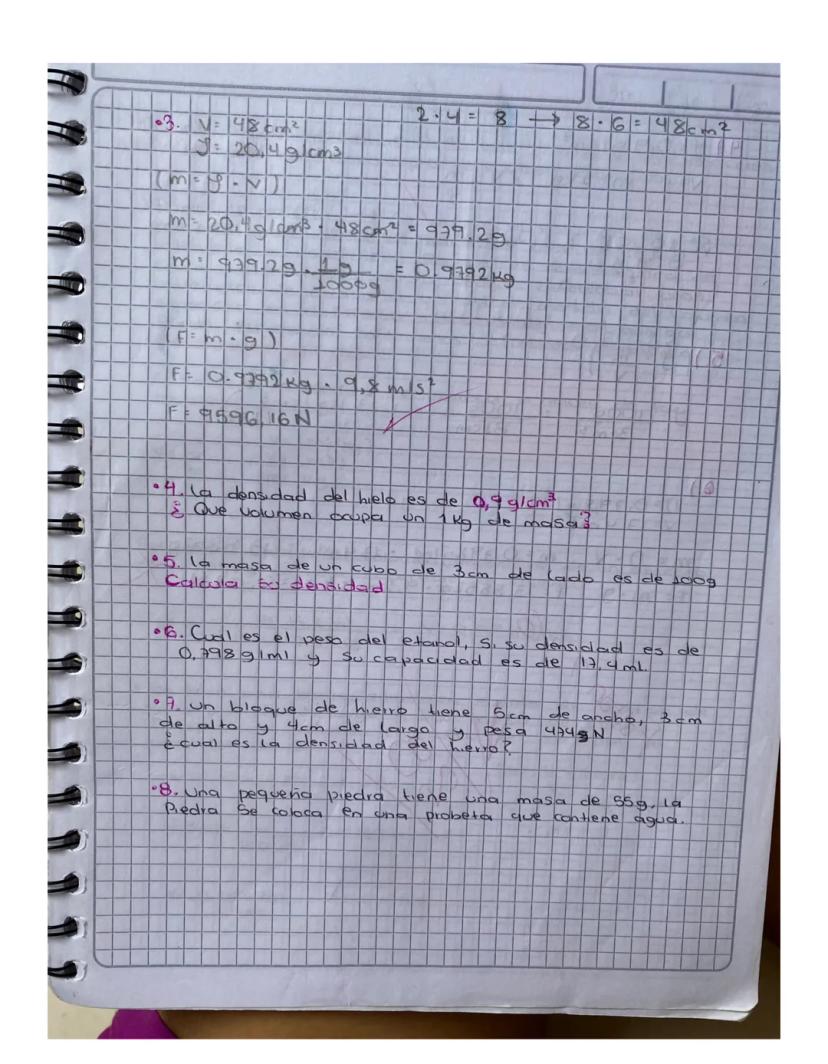 •3. V= 48cm² 2·4= 8 → 8·6= 48cm²
ρ= 20,4g/cm3
(m= ρ · V)
m= 20,4g/cm³ · 48cm² = 979.2g
m= 979.2g · 1g/1000g = 0.9792kg
(F= m · g)
F= 0.9792kg · 9,8m/s²
F= 9596,16N
•4. La densidad del hielo es de 0,9g/cm³
¿Que volumen ocupa un 1kg de masa?
•5. la masa de un cubo de 3cm de lado es de 100g
Calcula su densidad
•6. Cual es el peso del etanol, si su densidad es de
0,798g/ml y su capacidad es de 17,4mL
•7. un bloque de hierro tiene 5cm de ancho, 3cm
de alto y 4cm de largo y pesa 474gN
¿cual es la densidad del hierro?
•8. Una pequeña piedra tiene una masa de 55g. la
Piedra Se coloca en una probeta que contiene agua.